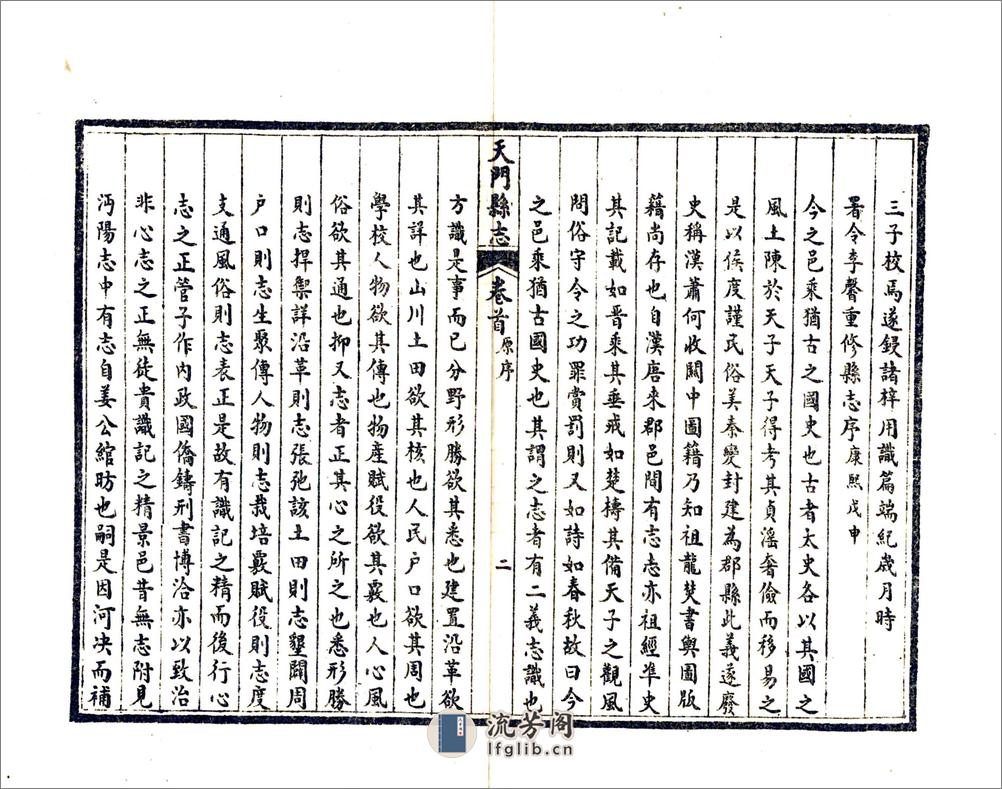 三子校焉遂鋟諸梓用識篇端紀歲月時
署令李馨重修縣志序康熙戊申
今之邑乘猶古之國史也古者太史各以其國之
風土陳於天子天子得考其貞滛奢儉而移易之
是以侯度謹民俗美秦變封建為郡縣此義遂廢
史稱漢蕭何收關中圖籍乃知祖龍焚書輿圖版
藉尚存也自漢唐來郡邑間有志志亦祖經準史
其記載如晋乘其垂戒如楚檮其備天子之觀風
問俗守令之功罪賞罰則又如詩如春秋故曰今
之邑乘猶古國史也其謂之志者有二義志識也
天門縣志 卷首 原序 二
方識是事而已分野形勝欲其悉也建置沿革欲
其詳也山川土田欲其核也人民户口欲其周也
學校人物欲其傳也物產賦役欲其覈也人心風
俗欲其通也抑又志者正其心之所之也悉形勝
則志捍禦詳沿革則志張弛該土田則志墾闢周
户口則志生聚傳人物則志栽培覈賦役則志度
支通風俗則志表正是故有識記之精而後行心
志之正管子作內政國僑鑄刑書博洽亦以致治
非心志之正無徒貴識記之精景邑昔無志附見
沔陽志中有志自姜公綰昉也嗣是因河决而補
流芳阁
lfglib.cn